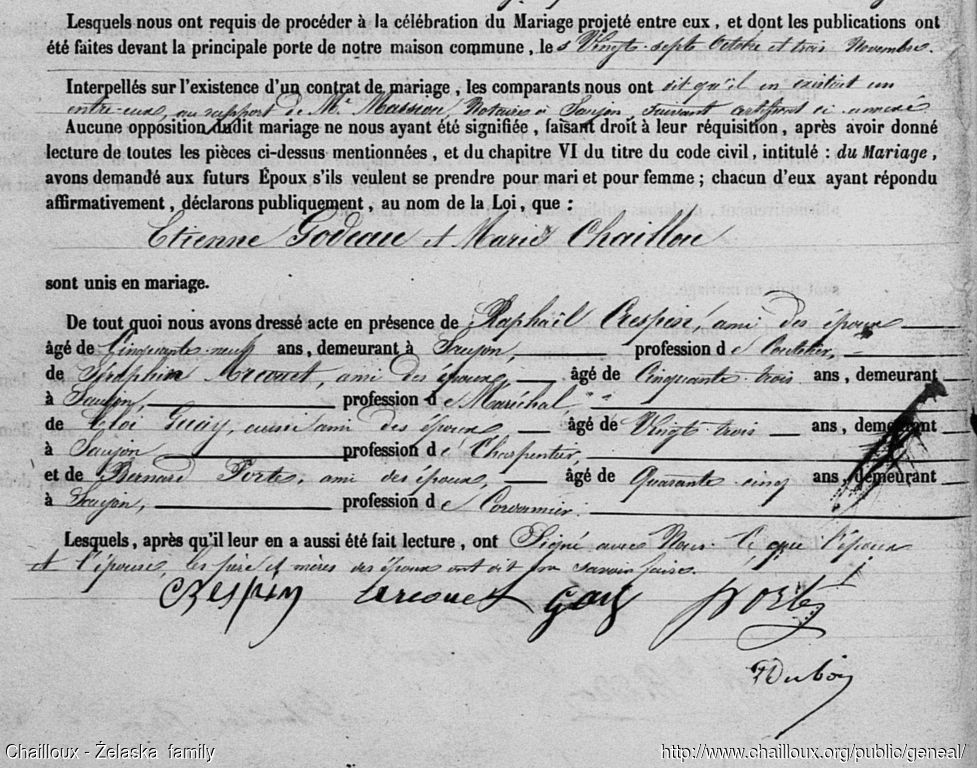 Lesquels nous ont requis de procéder à la célébration du Mariage projeté entre eux, et dont les publications ont
été faites devant la principale porte de notre maison commune, les Vingt-sept Octobre et trois Novembre.
Interpellés sur l'existence d'un contrat de mariage, les comparants nous ont dit qu'il en existait un
entre-eux, au rapport de Me Massiou, Notaire à Saujon, suivant certificat ci-annexé
Aucune opposition audit mariage ne nous ayant été signifiée, faisant droit à leur réquisition, après avoir donné
lecture de toutes les pièces ci-dessus mentionnées, et du chapitre VI du titre du code civil, intitulé : du Mariage,
avons demandé aux futurs Époux s'ils veulent se prendre pour mari et pour femme ; chacun d'eux ayant répondu
affirmativement, déclarons publiquement, au nom de la Loi, que :
Etienne Godeau et Marie Chaillou
sont unis en mariage.
De tout quoi nous avons dressé acte en présence de Raphaël Crespin, ami des époux
âgé de Cinquante-neuf ans, demeurant à Saujon, profession de
de Séraphin Arcouet, ami des époux, âgé de Cinquante-trois ans, demeurant
à Saujon, profession de Maréchal,
de Eloi Guay, aussi ami des époux, âgé de Vingt-trois ans, demeurant
à Saujon profession de Charpentier,
et de Bernard Porte, ami des époux, âgé de Quarante-cinq ans, demeurant
à Saujon, profession de Cordonnier.
Lesquels, après qu'il leur en a aussi été fait lecture, ont Signé avec Nous. Ce que l'époux
et l'épouse, les père et mères des époux ont dit ne savoir faire.
Crespin Arcouet Guay Porte
Dubois
Chailloux - Żelaska family http://www.chailloux.org/public/geneal/